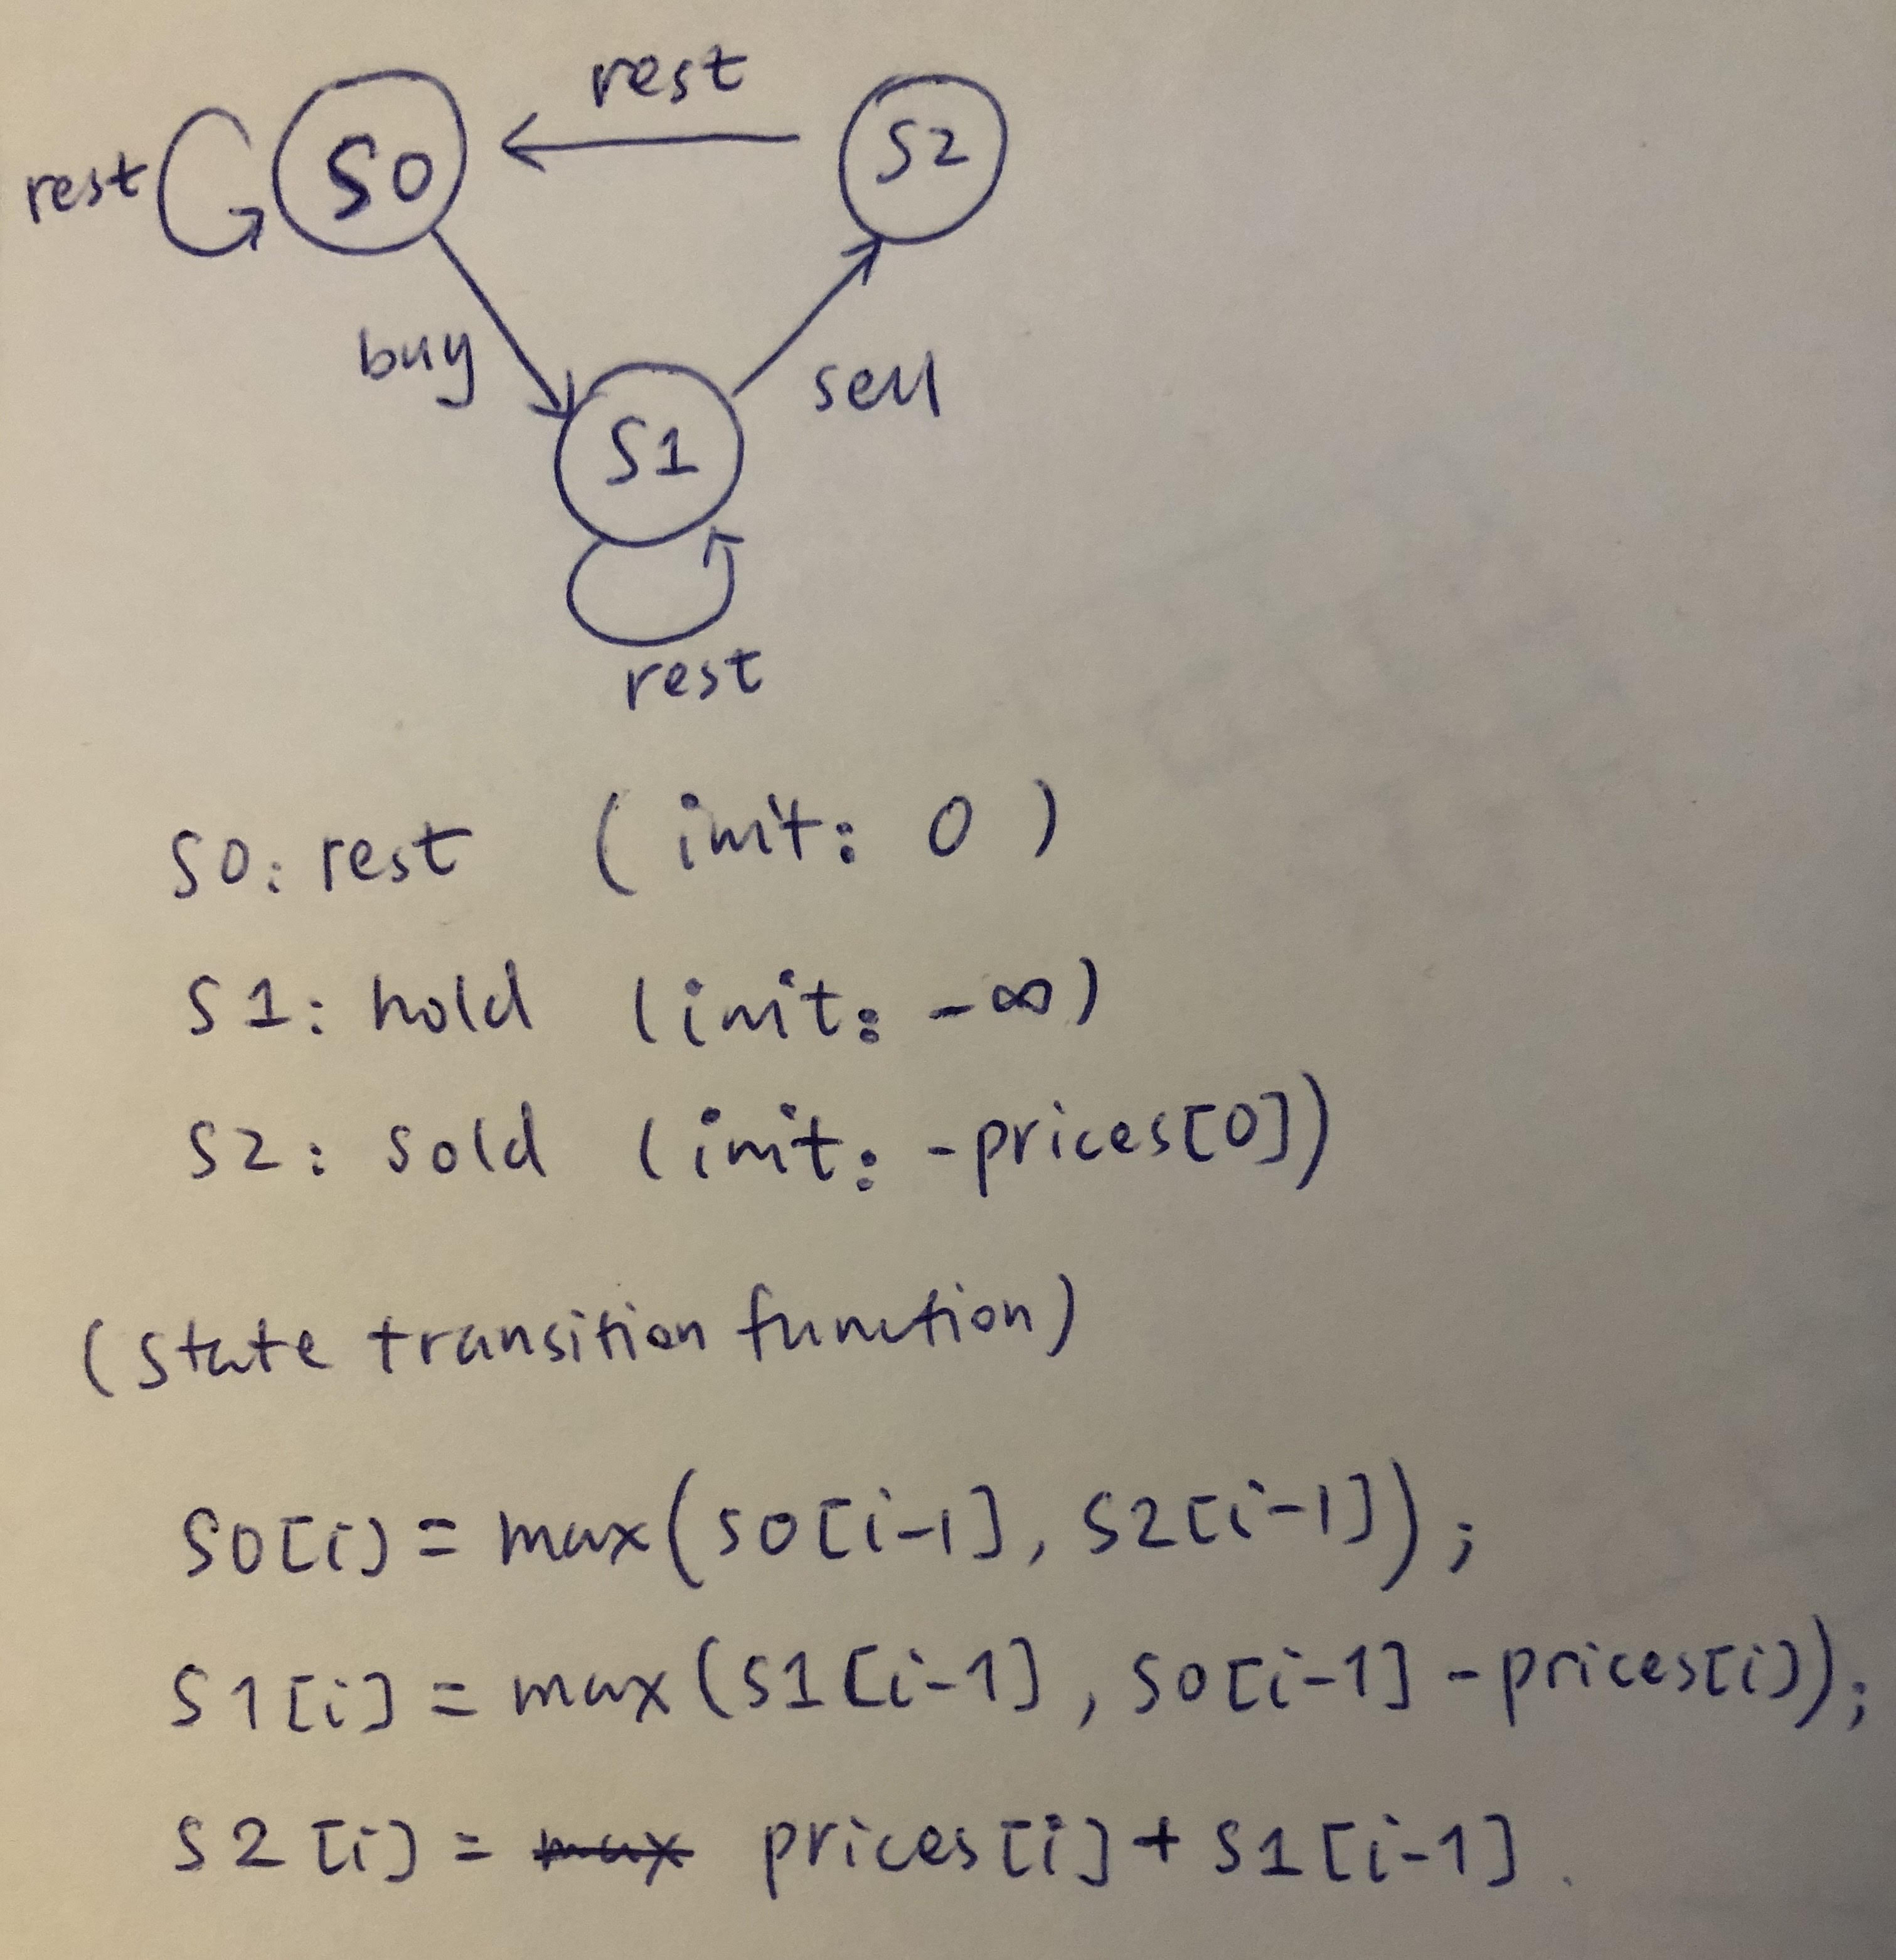 rest
rest
S0
S2
buy
sell
S1
rest
S0: rest (init: 0)
S1: hold (init: -∞)
S2: sold (init: -prices[0])
(state transition function)
S0[i] = max(S0[i-1], S2[i-1]);
S1[i] = max(S1[i-1], S0[i-1] - prices[i]);
S2[i] = max prices[i] + S1[i-1].